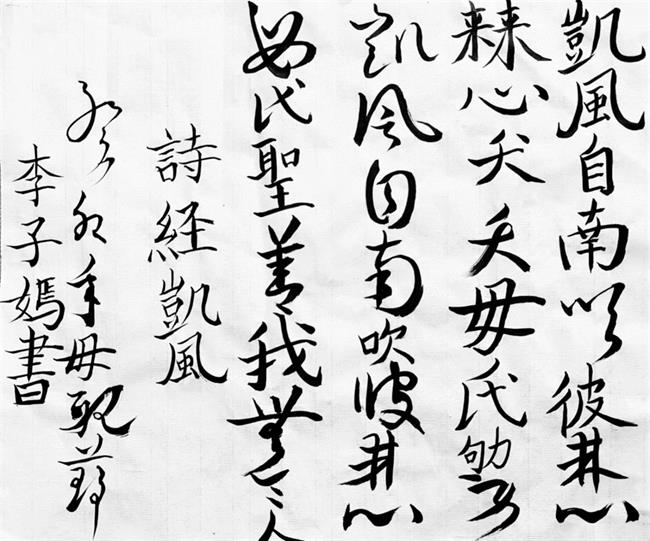 凱風自南吹彼棘心
棘心夭夭母氏劬勞
凱風自南吹彼棘心
母氏聖善我無令人
詩経凱風
癸卯年母親節
李子嫣書